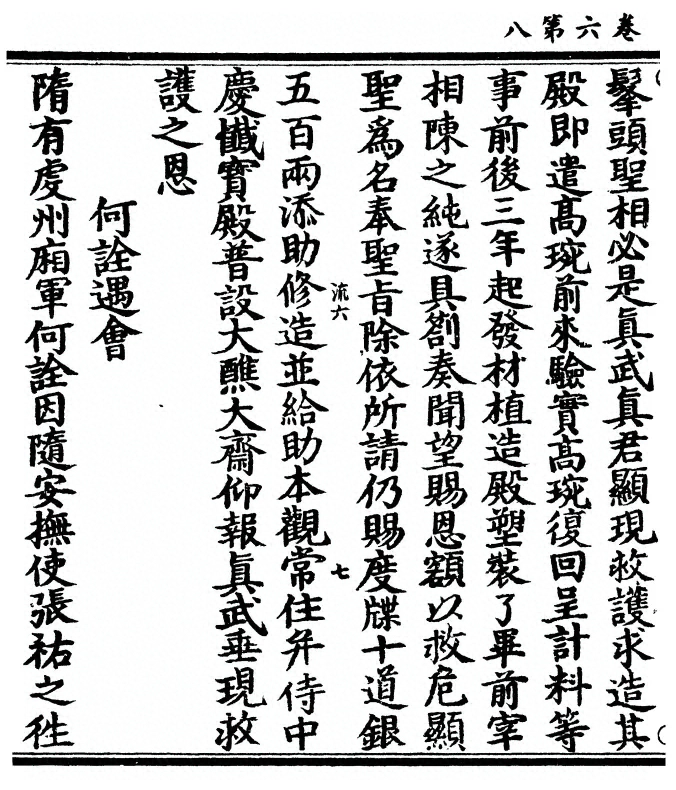 卷六第八
髼頭聖相必是眞武眞君顯現救護求造其
殿即遣髙琬前來驗實髙琬復回呈計料等
事前後三年起發材植造殿塑裝了畢前宰
相陳之純遂具劄奏聞望賜恩額以救危顯
聖爲名奉聖旨除依所請仍賜度牒十道銀
流六
七
五百兩添助修造並給助本觀常住弁侍中
慶懺寶殿普設大醮大齋仰報眞武垂現救
護之恩
何詮遇會
隋有虔州廂軍何詮因隨安撫使張祐之往